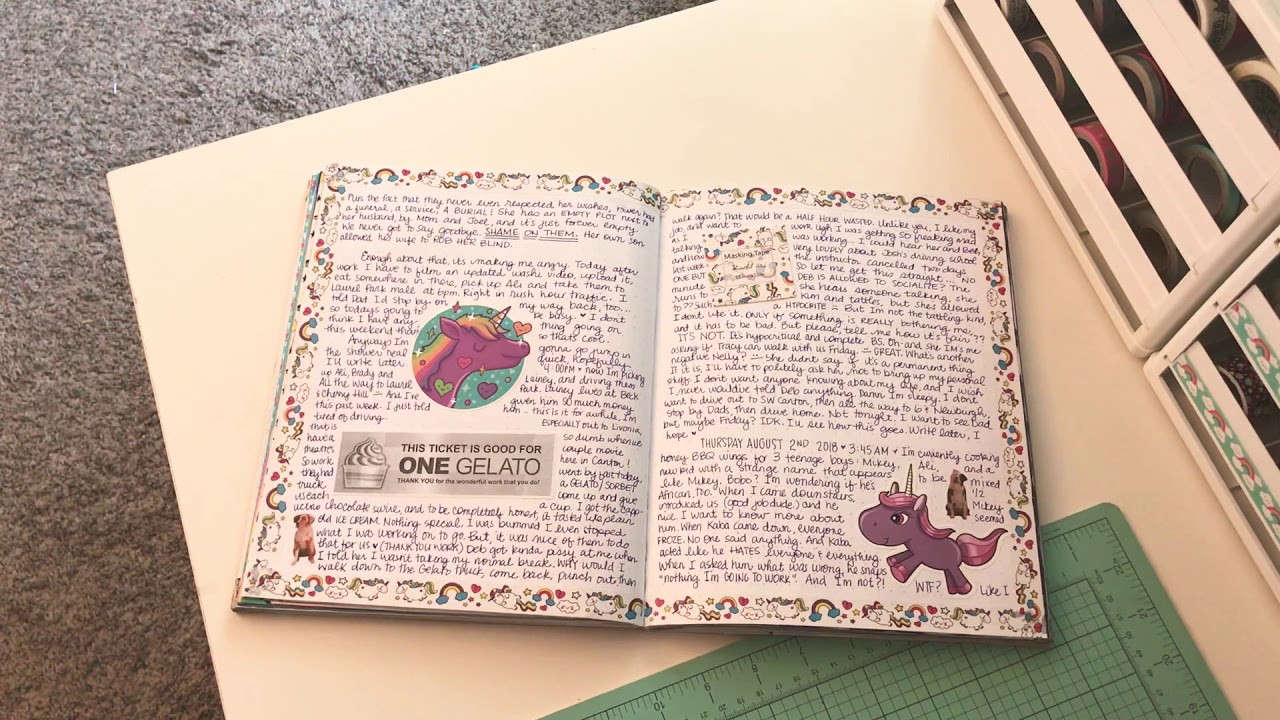 Plus the fact that they never even respected her wishes, never had
a funeral, a service, A BURIAL! She has an EMPTY PLOT next to
her husband, by Mom and Joel, and it's just forever empty.
We never got to say Goodbye. SHAME ON THEM. Her own son
allowed his wife to ROB HER BLIND.
Enough about that, its making me angry. Today after
work I have to film an updated washi video, upload it,
eat somewhere in there, pick up Ali and take them to
Laurel Park Male at 6pm. Right in rush hour traffic. I
told Dad I'd stop by on my way back, too...
so todays going to be busy. ♥ I don't
think I have any thing going on
this weekend tho so that's cool.
Anyway, Im gonna go jump in
the shower real quick. Hopefully
I'll write later 4:00PM ♥ now Im picking
up Ali, Brady and Lainey, and driving them
All the way to Laurel Park. Lainey lives at Beck
& Cherry Hill And I've given him so much money
this past week. I just told him .. this is it for awhile. Im
tired of driving ESPECIALLY out to Livonia,
that is so dumb when we
have a couple movie
theatres here in Canton!
So work went by fast today,
they had a GELATO/SORBET
truck, come up and give
us each a cup. I got the
chocolate swirl, and to be completely honest, it tastes like plain
old ICE CREAM. Nothing special. I was bummed I even stopped
what I was working on to go. But, it was nice of them to do
that for us ♥ (THANK YOU WORK) Deb got kinda pissy at me when
I told her I wasn't taking my normal break. WHY would I
walk down to the Gelato truck, come back, punch out then
THIS TICKET IS GOOD FOR
ONE GELATO
THANK YOU for the wonderful work that you do!
walk again? That would be a HALF HOUR WASTED. Unlike you, I like my
job, and want to work. Ugh I was getting SO freaking mad
as I was working... I could hear her and Bob
talking very loudly about Josh's driving school
and how the instructor cancelled two days
last week. So let me get this straight... NO
ONE BUT DEB IS ALLOWED TO SOCIALIZE? The
minute she hears someone talking, she
runs to Kim and tattles, but she's allowed
to?? Such a HYPOCRITE. But Im not the tattling kind,
I dont like it. ONLY if something is REALLY bothering me,
and it has to be bad. But please, tell me how it's fair??
IT'S NOT. It's hypocritical and complete BS. Oh and she IM's me
asking if Tracy can walk with us Friday. GREAT. What's another
negative Nelly? She didn't say if it's a permanent thing.
If it is, I'll have to politely ask her, not to bring up my personal
stuff I dont want anyone knowing about my life, and I wish
I never would've told Deb anything. Damn Im sleepy. I dont
want to drive out to SW Canton, then all the way to 6 & Newburgh,
stop by Dads, then drive home. Not tonight. I want to see Dad,
but maybe Friday? IDK. I'll see how this goes. Write later, I
hope ♥
Masking Tape
THURSDAY AUGUST 2ND 2018 ♥ 3:45AM ♥ Im currently cooking
honey BBQ wings for 3 teenage boys: Mikey, Ali, and a
new kid with a strange name that appears to be mixed
like Mikey. Bobo? I'm wondering if he's 1/2
African, too. When I came downstairs, Mikey
introduced us (good job dude) and he seemed
nice. I want to know more about
him. When Kaba came down, everyone
FROZE. No one said anything. And Kaba
acted like he HATES everyone & everything.
When I asked him what was wrong, he snaps
"nothing I'm GOING TO WORK". And Im not?!
WTF? Like I